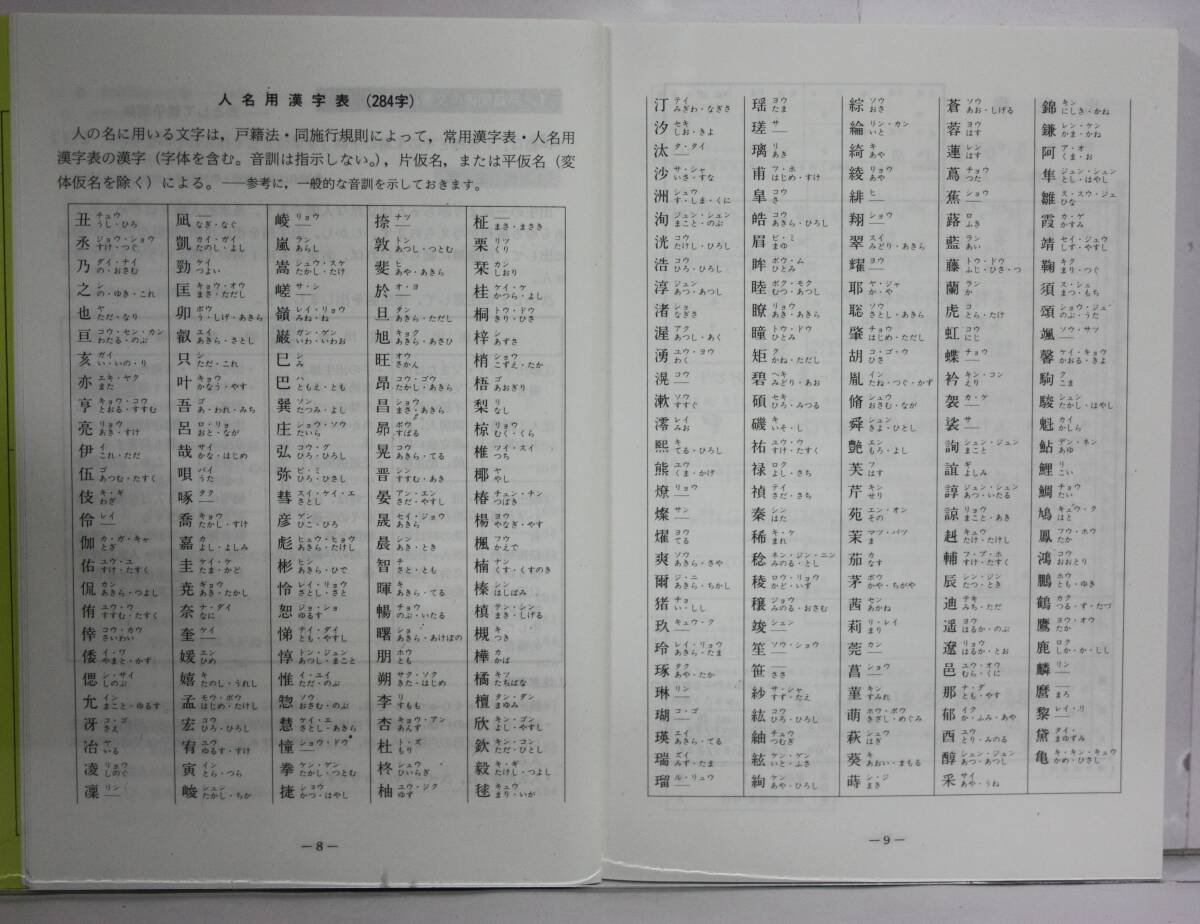 人名用漢字表 (284字)
人の名に用いる文字は，戸籍法・同施行規則によって，常用漢字表・人名用
漢字表の漢字（字体を含む。音訓は指示しない。），片仮名，または平仮名（変
体仮名を除く）による。――参考に，一般的な音訓を示しておきます。
丑 チュウ うし・ひろ
丞 ジョウ・ショウ すけ・つぐ
乃 ダイ・ナイ の・おさむ
之 シ の・ゆき・これ
也 ヤ ただ・なり
亘 コウ・セン・カン わたる・のぶ
亥 ガイ い・いの・り
亦 エキ・ヤク また
亨 キョウ・コウ とおる・すすむ
亮 リョウ あき・すけ
伊 イ これ・ただ
伍 ゴ あつむ・たすく
伎 キ・ギ わざ
伶 レイ ――
伽 カ・ガ・キャ とぎ
佑 ユウ・ユ すけ・たすく
侃 カン あきら・つよし
侑 ユウ・ウ すすむ・たすく
倖 コウ・カウ さいわい
倭 イ・ワ やまと・かず
偲 シ・サイ しのぶ
允 イン まこと・ゆるす
冴 コ・ゴ さえ
冶 ヤ いる
凌 リョウ しのぐ
凜 リン ――
凪 ―― なぎ・なぐ
凱 カイ・ガイ たのし・よし
勁 ケイ つよい
匡 キョウ・オウ まさ・ただし
卯 ボウ う・しげ・あきら
叡 エイ あきら・さとし
只 シ ただ・これ
叶 キョウ かなう・やす
吾 ゴ あ・われ・みち
呂 ロ・リョ おと・なが
哉 サイ かな・はじめ
唄 バイ うた
啄 タク ――
喬 キョウ たかし・すけ
嘉 カ よし・よしみ
圭 ケイ・ケ たま・かど
尭 ギョウ あき・たかし
奈 ナ・ダイ なに
奎 ケイ ――
媛 エン ひめ
嬉 キ たのし・うれし
孟 モウ・ボウ はじめ・たけし
宏 コウ ひろ・ひろし
宥 ユウ ゆるす・すけ
寅 イン とら・つら
峻 シュン たかし・ちか
崚 リョウ ――
嵐 ラン あらし
嵩 シュウ・スケ たかし・たけ
嵯 サ・シ ――
嶺 レイ・リョウ みね・ね
巌 ガン・ゲン いわ・いわお
巳 シ み
巴 ハ ともえ・とも
巽 ソン たつみ・よし
庄 ショウ・ソウ たいら
弘 コウ・グ ひろ・ひろし
弥 ビ・ミ ひろ・ひさし
彗 スイ・ケイ・エ さとし
彦 ゲン ひこ・ひろ
彪 ヒュウ・ヒョウ あきら・たけし
彬 ヒン あきら・ひで
怜 レイ・リョウ さとし・さと
恕 ジョ・ショ ゆるす
悌 テイ・ダイ とも・やすし
惇 トン・ジュン あつし・まこと
惟 イ・ユイ ただ・のぶ
惣 ソウ おさむ・のぶ
慧 ケイ・エ さとし・あきら
憧 ショウ・ドウ ――
拳 ケン・ゲン たかし・つとむ
捷 ショウ かつ・はやし
捺 ナツ ――
敦 トン あつし・つとむ
斐 ヒ あや・あきら
於 オ・ヨ ――
旦 タン あきら・ただし
旭 キョク あきら・あさひ
旺 オウ さかん
昂 コウ・ゴウ たかし・あきら
昌 ショウ まさ・あきら
昴 ボウ すばる
晃 コウ あきら・てる
晋 シン すすむ・あき
晏 アン・エン さだ・やすし
晟 セイ・ジョウ あきら
晨 シン あき・とき
智 チ さと・とも
暉 キ あきら・てる
暢 チョウ のぶ・いたる
曙 ショ あきら・あけぼの
朋 ホウ とも
朔 サク・ソク きた・はじめ
李 リ すもも
杏 キョウ・アン あんず
杜 ト・ズ もり
柊 シュウ ひいらぎ
柚 ユウ・ジク ゆず
柾 ―― まさ・まさき
栗 リツ くり
栞 カン しおり
桂 ケイ・ケ かつら・よし
桐 トウ・ドウ きり・ひさ
梓 シ あずさ
梢 ショウ こずえ・たか
梧 ゴ あおぎり
梨 リ なし
椋 リョウ むく・くら
椎 ツイ・スイ つち
椰 ヤ やし
椿 チュン・チン つばき
楊 ヨウ やなぎ・やす
楓 フウ かえで
楠 ナン くす・くすのき
榛 シン はしばみ
槙 テン・シン まき・しげる
槻 キ つき
樺 カ かば
橘 キツ たちばな
檀 タン・ダン まゆみ
欣 キン・ゴン よし・やすし
欽 キン・コン ただ・ひとし
毅 キ・ギ たけし・つよし
毬 キュウ まり・いが
―8―
汀 テイ みぎわ・なぎさ
汐 セキ しお・きよ
汰 タ・タイ ――
沙 サ・シャ いさ・すな
洲 シュウ す・しま・くに
洵 ジュン・シュン まこと・のぶ
洸 コウ たけし・ひろし
浩 コウ ひろ・ひろし
淳 ジュン あつ・あつし
渚 ショ なぎさ
渥 アク あつし・あく
湧 ユウ・ヨウ わく
滉 コウ ――
漱 ソウ すすぐ
澪 レイ みお
熙 キ てる・ひろし
熊 ユウ くま・かげ
燎 リョウ ――
燦 サン ――
燿 ヨウ てる
爽 ソウ あきら・さや
爾 ジ・ニ あきら・ちかし
猪 チョ い・しし
玖 キュウ・ク ――
玲 レイ・リョウ あきら・たま
琢 タク あや・たか
琳 リン ――
瑚 コ・ゴ ――
瑛 エイ あきら・てる
瑞 ズイ みず・たま
瑠 ル・リュウ ――
瑶 ヨウ たま
瑳 サ ――
璃 リ あき
甫 フ・ホ はじめ・すけ
皐 コウ さ
皓 コウ あきら・ひろし
眉 ビ・ミ まゆ
眸 ボウ・ム ひとみ
睦 ボク・モク むつ・あつし
瞭 リョウ あき・あきら
瞳 トウ・ドウ ひとみ
矩 ク かね・ただし
碧 ヘキ みどり・あお
碩 セキ ひろ・みつる
磯 キ いそ・し
祐 ユウ・ウ すけ・たすく
禄 ロク よし・さち
禎 テイ さだ・さち
秦 シン はた
稀 キ・ケ まれ
稔 ネン・ジン・ニン みのる・とし
稜 ロウ・リョウ かど・いず
穣 ジョウ みのる・おさむ
竣 シュン ――
笙 ソウ・ショウ ――
笹 ―― ささ
紗 サ・シャ すず・たえ
紘 コウ ひろ・ひろし
紬 チュウ つむぎ
絃 ケン・ゲン いと・ふさ
絢 ケン あや・ひろし
綜 ソウ おさ
綸 リン・カン いと
綺 キ あや
綾 リョウ あや
緋 ヒ あか
翔 ショウ ――
翠 スイ みどり・あきら
耀 ヨウ ――
耶 ヤ・ジャ か・や
聡 ソウ さとし・あきら
肇 チョウ はじめ・ただし
胡 コ・ゴ・ウ ひさ
胤 イン たね・つぐ・かず
脩 シュウ おさむ・なが
舜 シュン きよ・ひとし
艶 エン もろ・よし
芙 フ はす
芹 キン せり
苑 エン・オン その
茉 マツ・バツ ま
茄 カ なす
茅 ボウ かや・ちがや
茜 セン あかね
莉 リ・レイ まり
莞 カン ――
菖 ショウ ――
菫 キン すみれ
萌 ホウ・ボウ きざし・めぐみ
萩 シュウ はぎ
葵 キ あおい・まもる
蒔 シ・ジ まき
蒼 ソウ あお・しげる
蓉 ヨウ はす
蓮 レン はす
蔦 チョウ つた
蕉 ショウ ――
蕗 ロ ふき
藍 ラン あい
藤 トウ・ドウ ふじ・ひさ・つ
蘭 ラン か
虎 コ とら・たけ
虹 コウ にじ
蝶 チョウ ――
衿 キン・コン えり
袈 カ・ケ ――
裟 サ ――
詢 シュン・ジュン まこと
誼 ギ よしみ
諄 ジュン・シュン あつ・いたる
諒 リョウ まこと・あき
赳 キュウ たけ・たけし
輔 フ・ブ・ホ すけ・たすく
辰 シン・ジン たつ・とき
迪 テキ みち・ただ
遥 ヨウ はるか・のぶ
遼 リョウ はるか・とお
邑 ユウ・オウ むら・くに
那 ナ・ダ とも・やす
郁 イク か・ふみ・あや
酉 ユウ とり・みのる
醇 シュン・ジュン あつ・あつし
采 サイ あや・うね
錦 キン にしき・かね
鎌 レン・ケン かま・かね
阿 ア・オ くま・お
隼 ジュン・シュン とし・はやし
雛 ス・スウ・ジュ ひな
霞 カ・ゲ かすみ
靖 セイ・ジョウ しず・やすし
鞠 キク まり・つぐ
須 ス・シュ まつ・もち
頌 ショウ・ジュ のぶ・うた
颯 ソウ・サツ ――
馨 ケイ・キョウ かおる・きよ
駒 ク こま
駿 シュン たかし・はやし
魁 カイ かしら
鮎 デン・ネン あゆ
鯉 リ こい
鯛 チョウ たい
鳩 キュウ・ク はと
鳳 フウ・ホウ たか
鴻 コウ おおとり
鵬 ホウ とも・ゆき
鶴 カク つる・ず・たづ
鷹 ヨウ・オウ たか
鹿 ロク しか・か・しし
麟 リン ――
麿 ―― まろ
黎 レイ・リ ――
黛 タイ まゆずみ
亀 キ・キン・キュウ かめ・ひさし
―9―